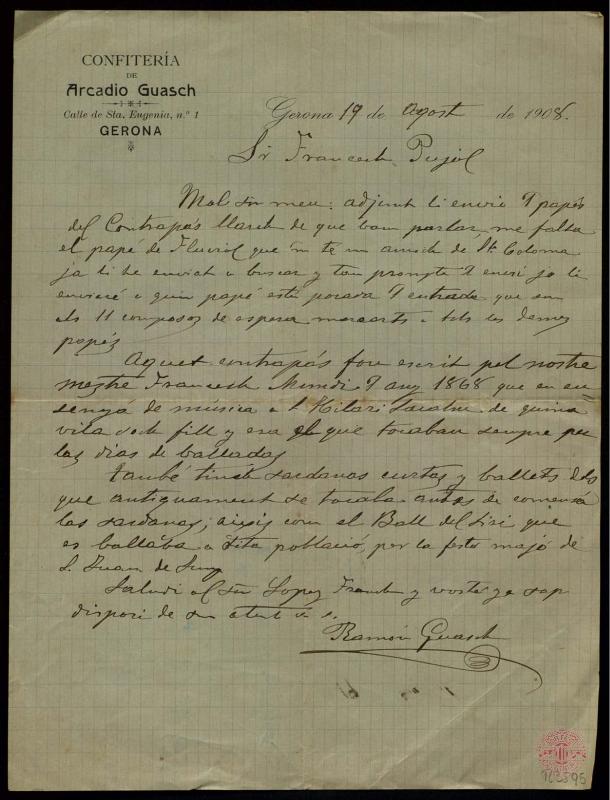 CONFITERÍA
DE
Arcadio Guasch
Calle de Sta. Eugenia, n.º 1
GERONA
Gerona 19 de Agost de 1908.
Sr Francesch Pujol
Mol Sr meu: adjunt li envio 9 papés
del Contrapás llarch de que vam parlar, me falta
el papé de Fluviol que 'm te un amich de Sta Coloma
ja li he enviat a buscar y tan prompte l'envii jo li
enviaré a quin papé está posada l'entrada que son
els 11 composos de espera marcats a tots los demes
papés
Aquet contrapás fou escrit pel nostre
mestre Francesch Mundi l'any 1868 que en en
senyá de música a S. Hilari Sacalm de quina
vila soch fill y era el que tocaban sempre per
las dias de balladas
També tinch sardanas curtas y ballets dels
que antiguament se tocaba antes de comensá
las sardanas; aixis com el Ball del Siri que
es ballaba a dita població, per la festa majó de
S. Juan de Juny
Saludi al Sr Lopez Franch y vosté ja sap
disposi de son atent s. s.
Ramón Guasch
162395